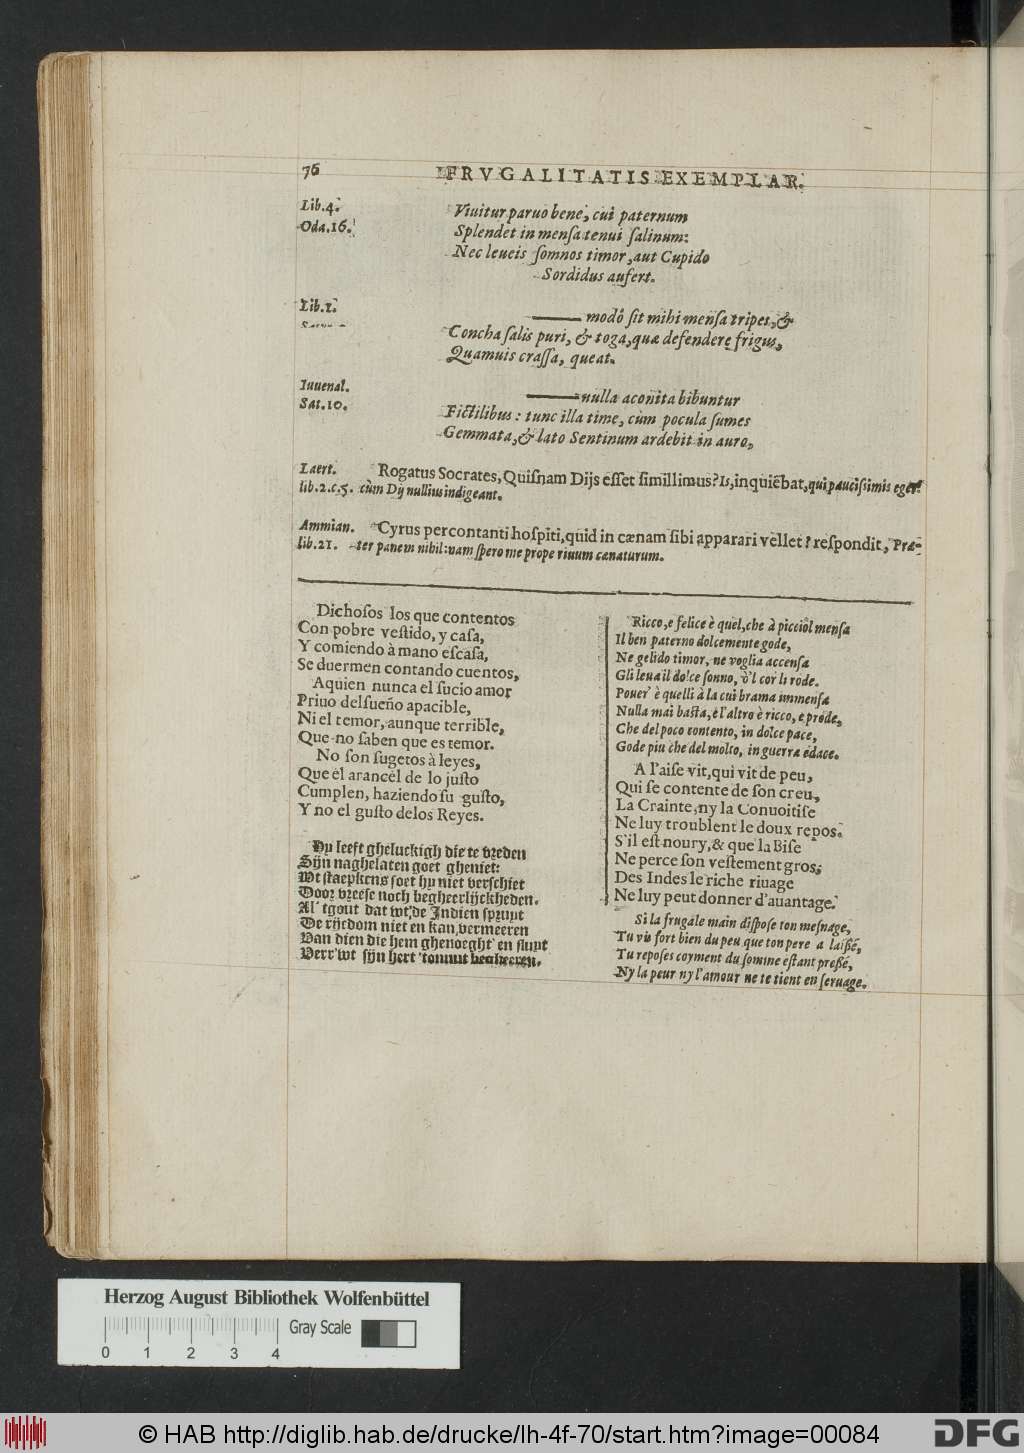 76
FRVGALITATIS EXEMPLAR.
Lib.4.
Oda.16.
Viuitur paruo bene, cui paternum
Splendet in mensa tenui salinum:
Nec leueis somnos timor, aut Cupido
Sordidus aufert.
Lib.1.
modò sit mihi mensa tripes, &
Concha salis puri, & toga, quæ defendere frigus,
Quamuis crassa, queat.
Iuuenal.
Sat.10.
nulla aconita bibuntur
Fictilibus: tunc illa time, cùm pocula sumes
Gemmata, & lato Sentinum ardebit in auro,
Laert.
lib.2.c.5.
Rogatus Socrates, Quisnam Dijs esset simillimus? Is, inquiēbat, qui paucissimis eget:
cùm Dij nullius indigeant.
Ammian.
lib.21.
Cyrus percontanti hospiti, quid in cænam sibi apparari vellet? respondit, Præ-
ter panem nihil: nam spero me prope riuum cænaturum.
Dichosos los que contentos
Con pobre vestido, y casa,
Y comiendo à mano escasa,
Se duermen contando cuentos,
Aquien nunca el sucio amor
Priuo del sueño apacible,
Ni el temor, aunque terrible,
Que no saben que es temor.
No son sugetos à leyes,
Que el arancel de lo justo
Cumplen, haziendo su gusto,
Y no el gusto delos Reyes.
Hy leeft gheluckigh die te vreden
Sijn naghelaten goet gheniet:
Wt slaepkens soet hy niet verschiet
Door vreese noch begheerlijckheden.
Al 't gout dat wt de Indien spruyt
De rijcdom niet en kan vermeeren
Van dien die hem ghenoeght en sluyt
Verr' wt sijn hert 'tonnut begheeren.
Ricco, e felice è quel, che à picciol mensa
Il ben paterno dolcemente gode,
Ne gelido timor, ne voglia accensa
Gli leua il dolce sonno, ò'l cor li rode.
Pouer' è quelli à la cui brama immensa
Nulla mai basta, e l'altro è ricco, e prode,
Che del poco contento, in dolce pace,
Gode piu che del molto, in guerra edace.
A l'aise vit, qui vit de peu,
Qui se contente de son creu,
La Crainte, ny la Conuoitise
Ne luy troublent le doux repos.
S'il est noury, & que la Bise
Ne perce son vestement gros;
Des Indes le riche riuage
Ne luy peut donner d'auantage.
Si la frugale main dispose ton mesnage,
Tu vis fort bien du peu que ton pere a laissé,
Tu reposes coyment du somme estant pressé,
Ny la peur ny l'amour ne te tient en seruage.
Herzog August Bibliothek Wolfenbüttel
Gray Scale
0 1 2 3 4
© HAB http://diglib.hab.de/drucke/lh-4f-70/start.htm?image=00084
DFG